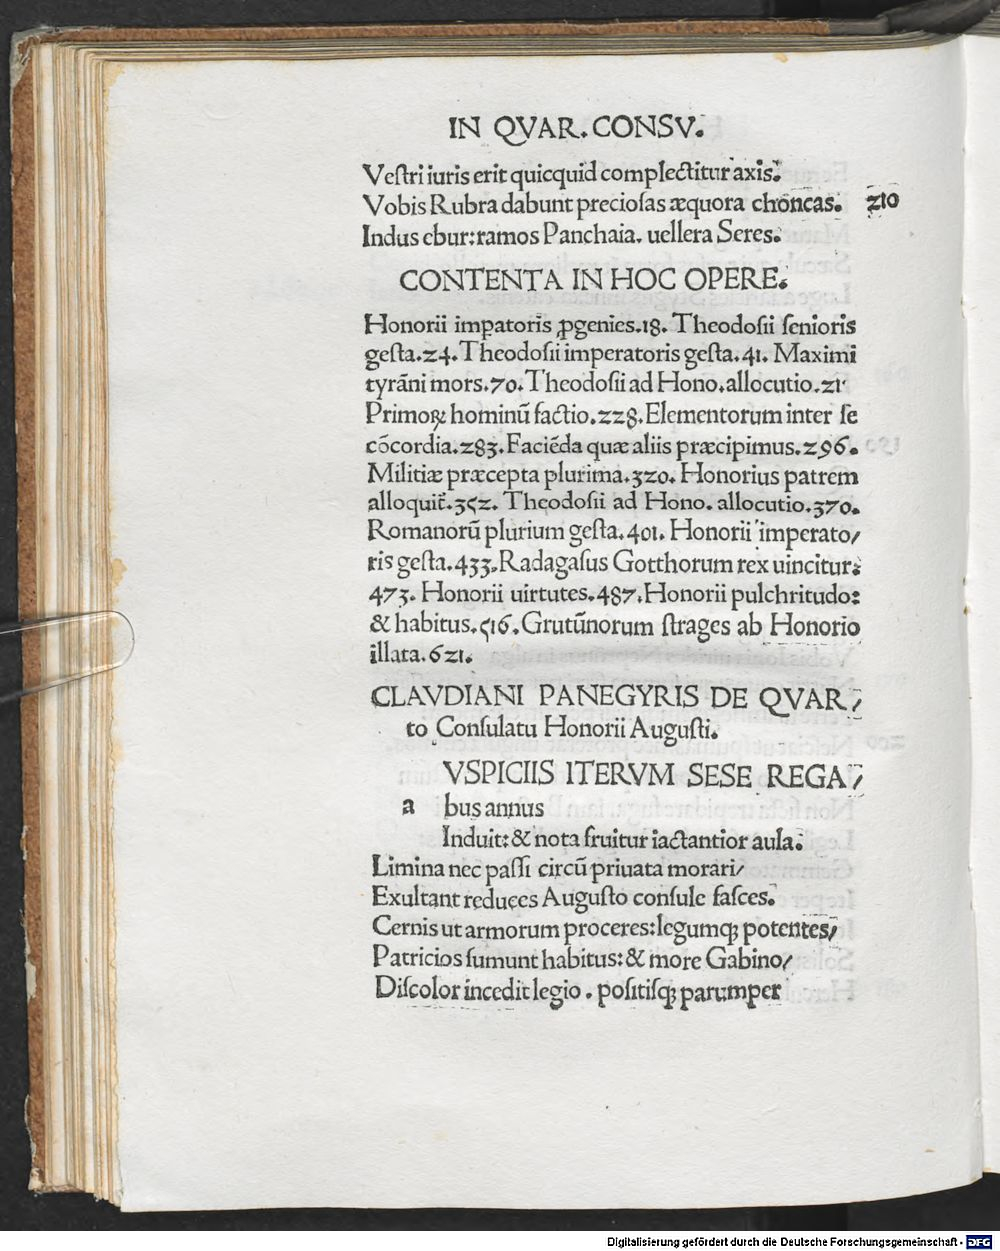 IN QVAR. CONSV.
Veſtri iuris erit quicquid complectitur axis.
Vobis Rubra dabunt precioſas æquora choncas. 210
Indus ebur: ramos Panchaia. uellera Seres.
CONTENTA IN HOC OPERE.
Honorii impatoris ꝓgenies. 18. Theodoſii ſenioris
geſta. 24. Theodoſii imperatoris geſta. 41. Maximi
tyrāni mors. 70. Theodoſii ad Hono. allocutio. 21
Primoꝝ hominū factio. 228. Elementorum inter ſe
cōcordia. 283. Faciēda quæ aliis præcipimus. 296.
Militiæ præcepta plurima. 320. Honorius patrem
alloquit̄. 352. Theodoſii ad Hono. allocutio. 370.
Romanorū plurium geſta. 401. Honorii imperato/
ris geſta. 433. Radagaſus Gotthorum rex uincitur:
473. Honorii uirtutes. 487. Honorii pulchritudo:
& habitus. 516. Grutūnorum ſtrages ab Honorio
illata. 621.
CLAVDIANI PANEGYRIS DE QVAR/
to Conſulatu Honorii Auguſti.
VSPICIIS ITERVM SESE REGA/
a bus annus
Induit: & nota fruitur iactantior aula.
Limina nec paſſi circū priuata morari/
Exultant reduces Auguſto conſule faſces.
Cernis ut armorum proceres: legumqꝫ potentes/
Patricios ſumunt habitus: & more Gabino/
Diſcolor incedit legio. poſitiſqꝫ parumper
Digitalisierung gefördert durch die Deutsche Forschungsgemeinschaft - DFG